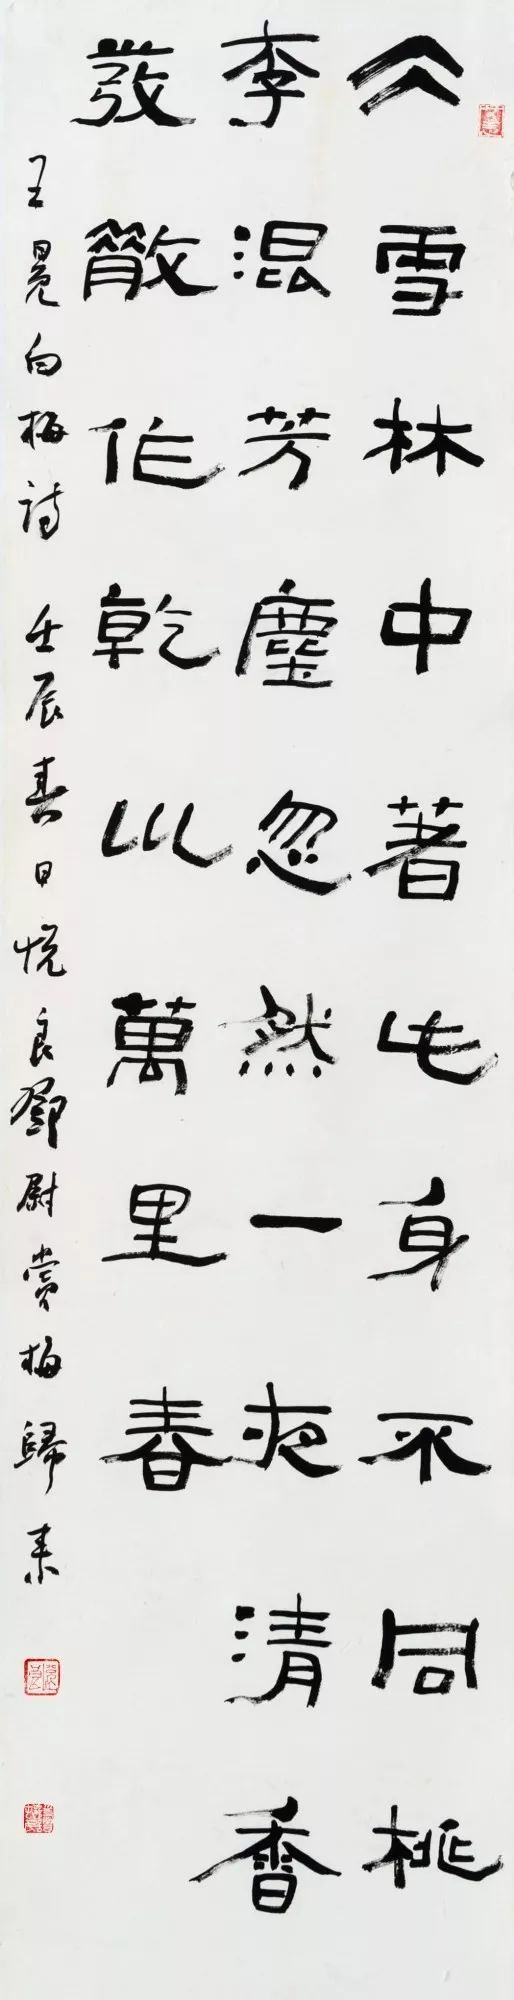 仌雪林中著此身不同桃
李混芳塵忽然一夜清香
發散作乾巛萬里春
王冕白梅詩 壬辰春日悅良鄧尉賞梅歸来